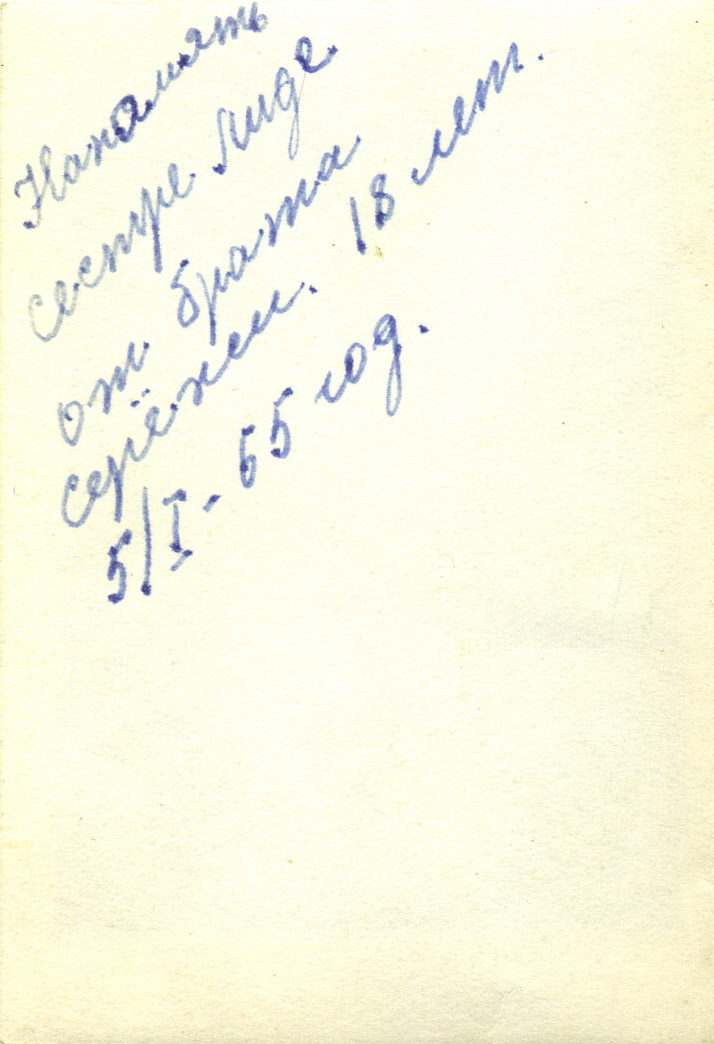 Напамять
сестре Лиде
от брата
серёжи. 18 лет.
5/I - 65 год.